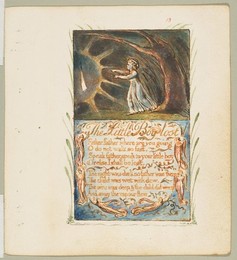 The Little Boy lost
Father, father, where are you going
O do not walk so fast.
Speak father, speak to your little boy
Or else I shall be lost,
The night was dark no father was there
The child was wet with dew.
The mire was deep, & the child did weep
And away the vapour flew.